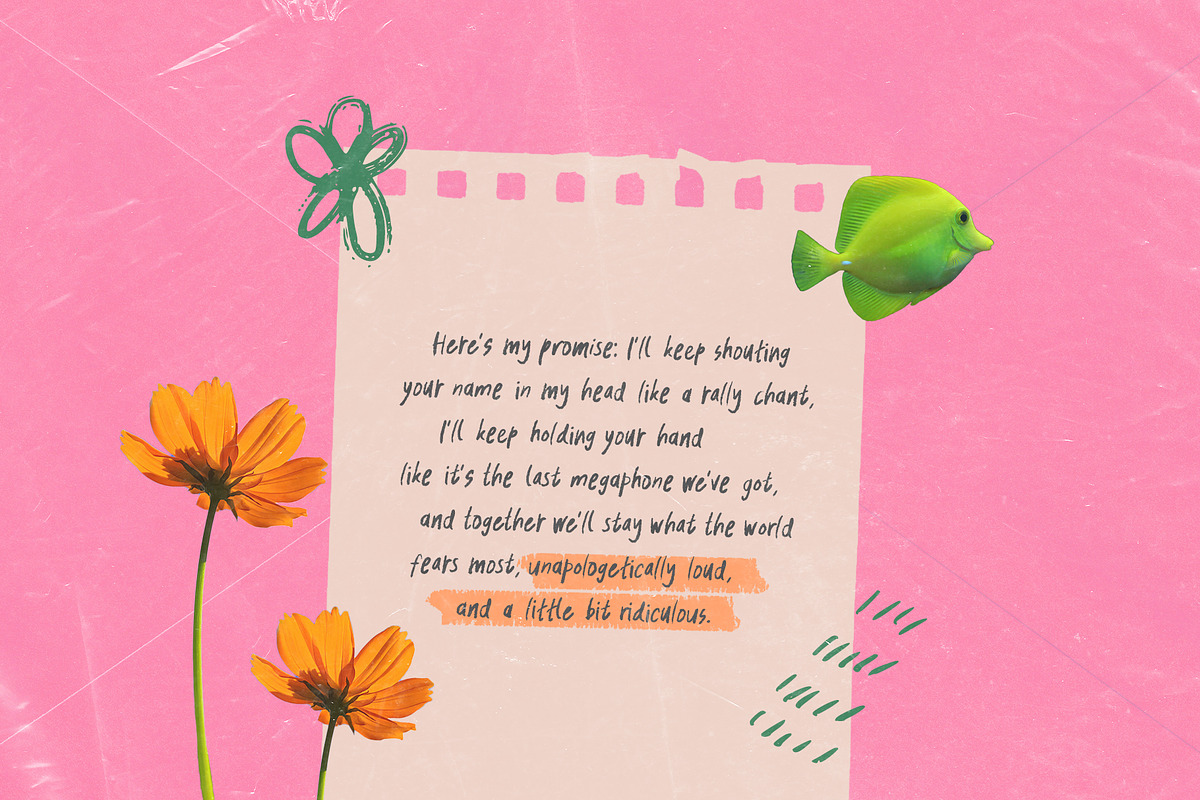 Here's my promise: I'll keep shouting
your name in my head like a rally chant,
I'll keep holding your hand
like it's the last megaphone we've got,
and together we'll stay what the world
fears most, unapologetically loud,
and a little bit ridiculous.